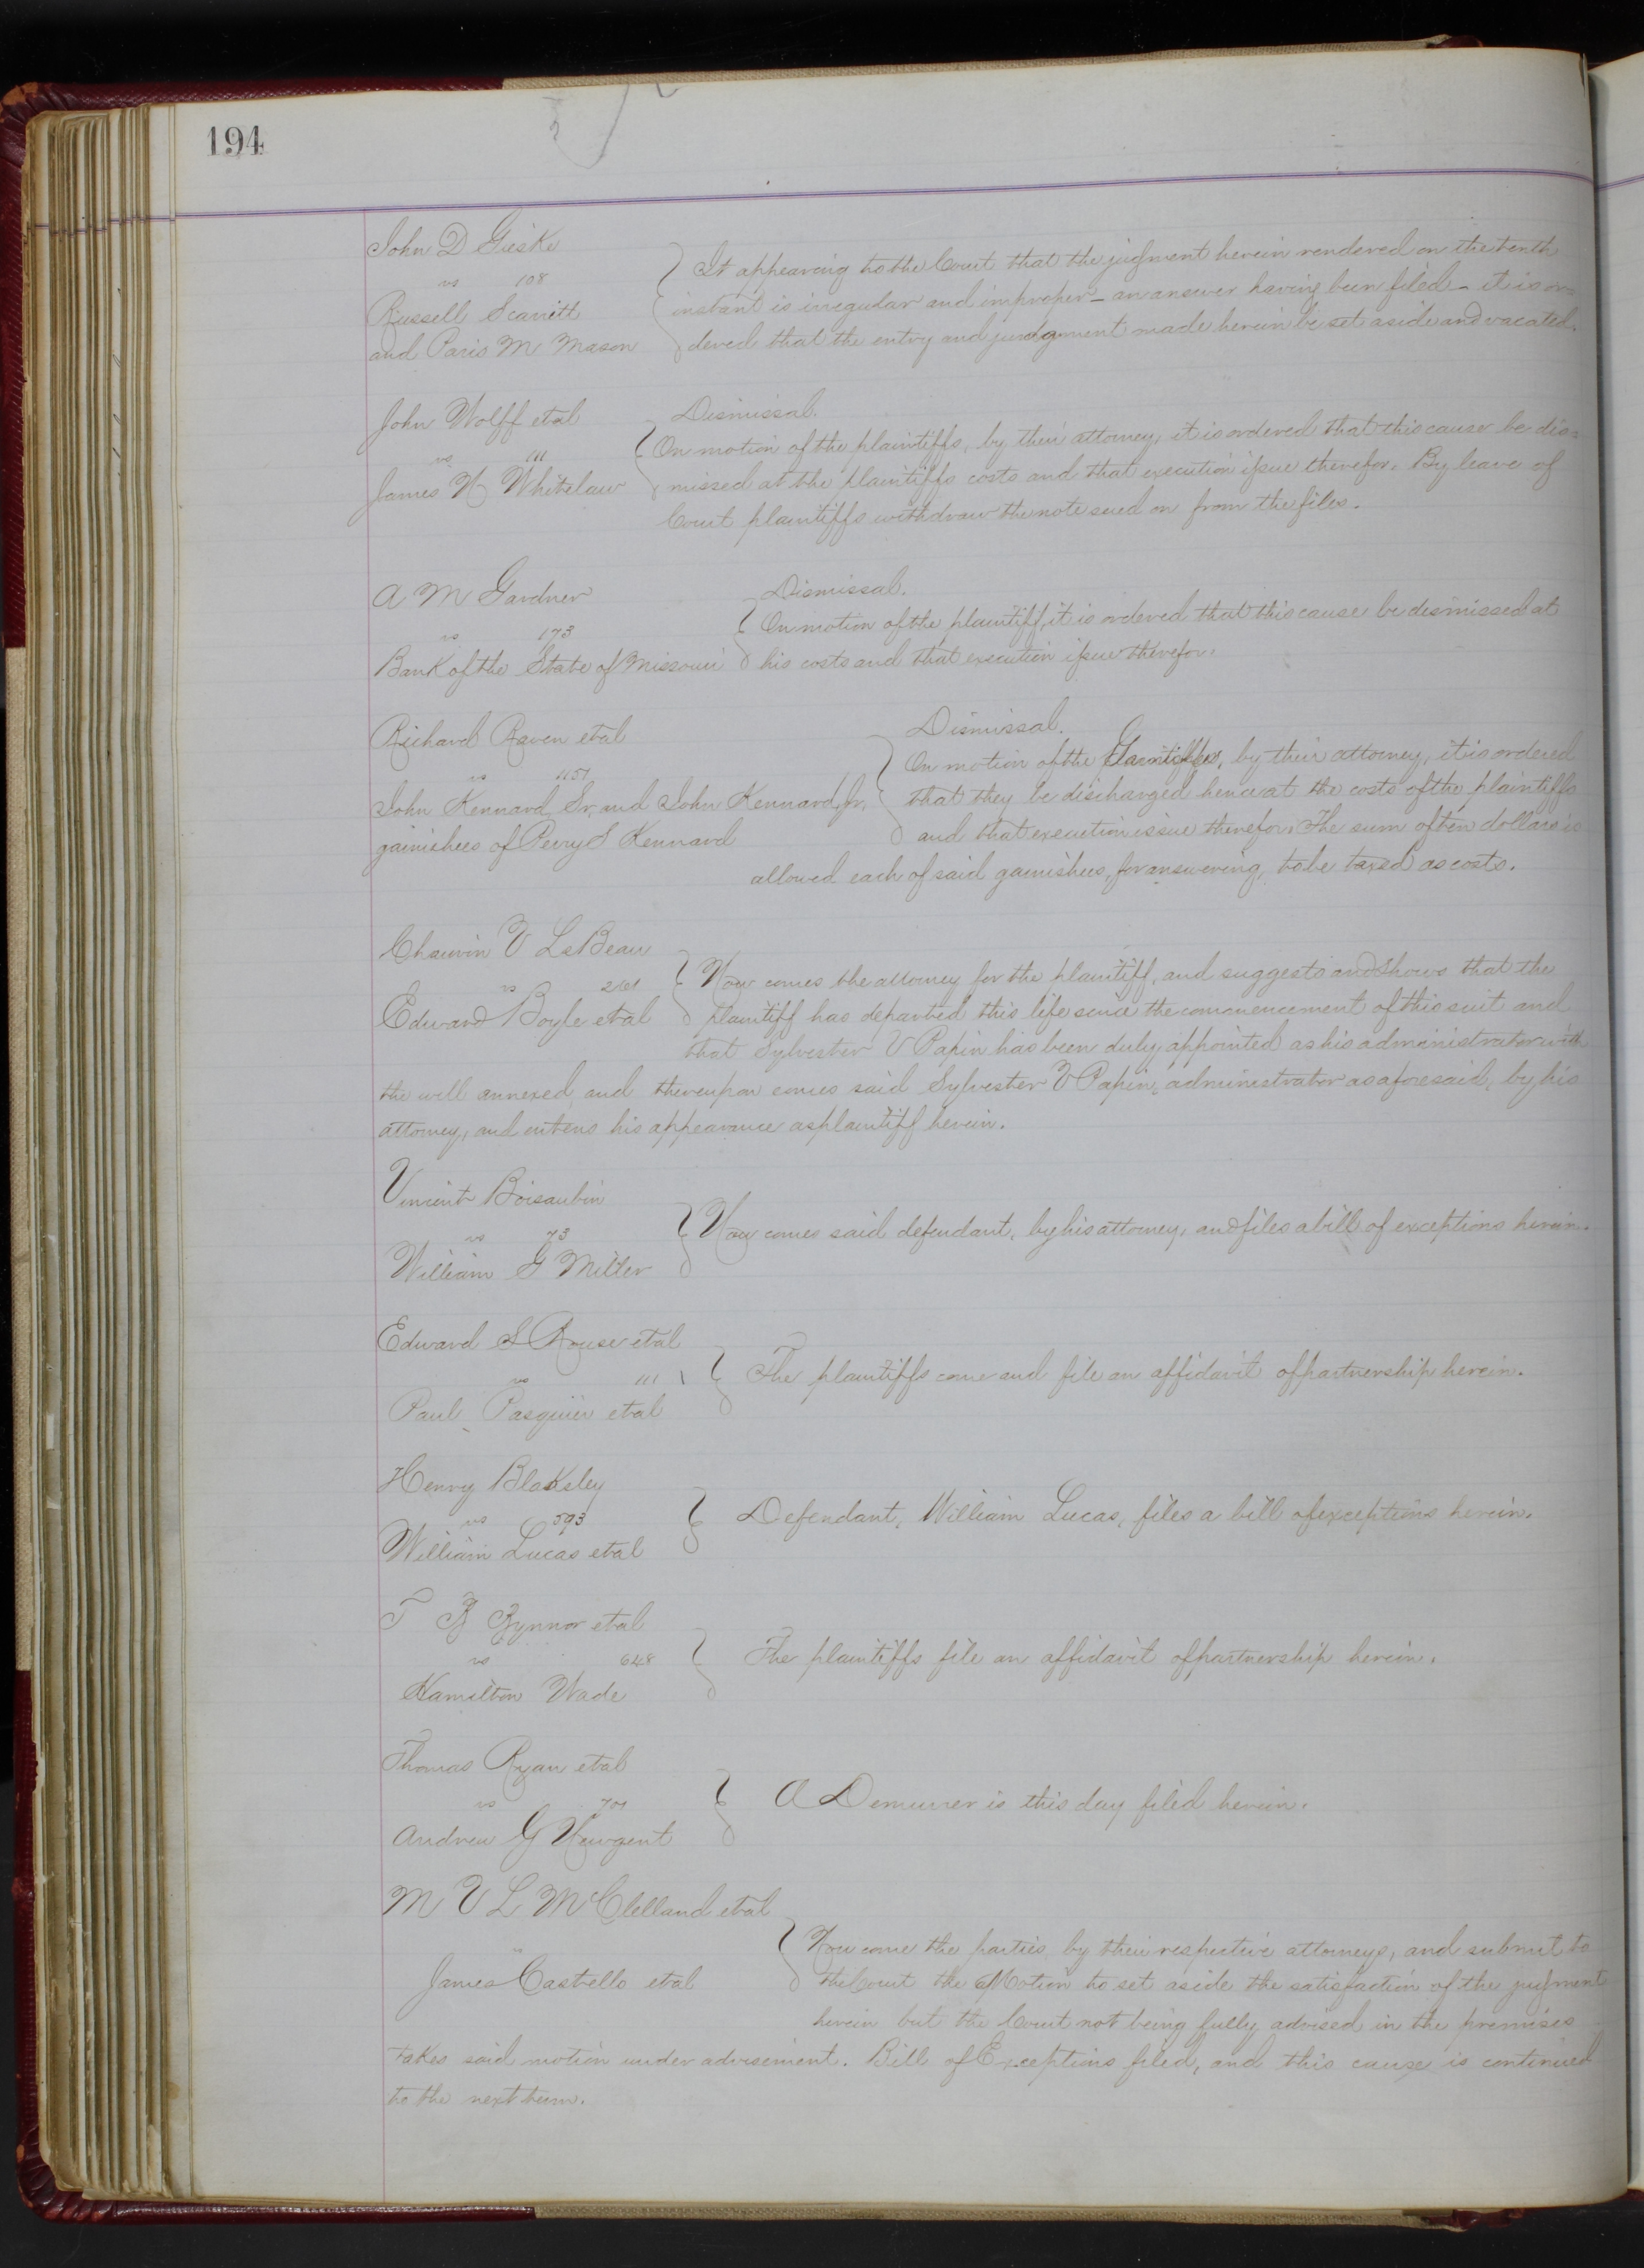 194
John D Gieske
vs 108
Russell Scarritt
and Paris M Mason
It appearing to the Court that the judgment herein rendered on the tenth
instant is irregular and improper – an answer having been filed – it is or=
dered that the entry and judgment made herein be set aside and vacated.
John Wolff etal
vs 111
James N Whitelaw
Dismissal.
On motion of the plaintiffs, by their attorney, it is ordered that this cause be dis=
missed at the plaintiffs costs and that execution issue therefor. By leave of
Court plaintiffs withdraw the note sued on from the files.
A M Gardner
vs 173
Bank of the State of Missouri
Dismissal.
On motion of the plaintiff, it is ordered that this cause be dismissed at
his costs and that execution issue therefor.
Richard Raven etal
vs 1157
John Kennard, Sr, and John Kennard, Jr,
garnishees of Perry S Kennard
Dismissal.
On motion of the Garnishees, by their attorney, it is ordered
that they be discharged hence at the costs of the plaintiffs
and that execution issue therefor. The sum of ten dollars is
allowed each of said garnishees, for answering, to be taxed as costs.
Chauvin V LeBeau
vs 261
Edward Boyle etal
Now comes the attorney for the plaintiff, and suggests and shows that the
plaintiff has departed this life since the commencement of this suit and
that Sylvester V Papin has been duly appointed as his administrator with
the will annexed, and thereupon comes said Sylvester V Papin, administrator as aforesaid, by his
attorney, and enters his appearance as plaintiff herein.
Vincent Boisaubin
vs 73
William G Miller
Now comes said defendant, by his attorney, and files a bill of exceptions herein.
Edward S Rouse etal
vs 111
Paul Pasquier etal
The plaintiffs come and file an affidavit of partnership herein.
Henry Blaksley
vs 593
William Lucas etal
Defendant, William Lucas, files a bill of exceptions herein.
T R Rynnor etal
vs 648
Hamilton Wade
The plaintiffs file an affidavit of partnership herein.
Thomas Ryan etal
vs 701
Andrew G Newgent
A Demurrer is this day filed herein.
M V L McClelland etal
vs
James Castello etal
Now come the parties, by their respective attorneys, and submit to
the Court the Motion to set aside the satisfaction of the judgment
herein but the Court not being fully advised in the premises
takes said motion under advisement. Bill of Exceptions filed, and this cause is continued
to the next term.